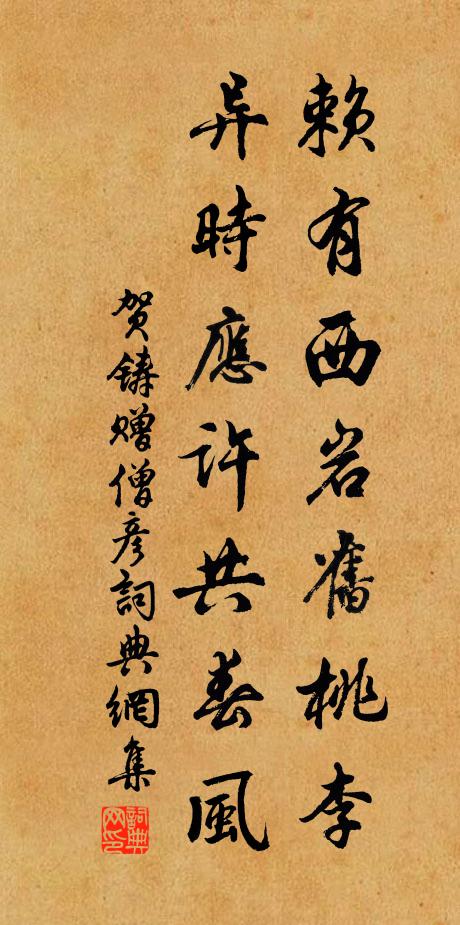 賴有西岩舊桃李
异時應許共春風
贺鑄赠僧彦詞典網集
詞典网印